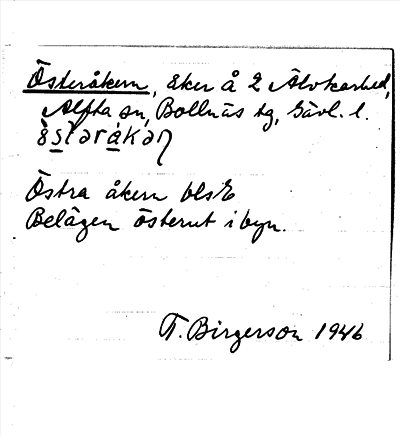 Österåkern, åker å 2 Älvkarhed,
Alfta sn, Bollnäs tg, Gävl. l.
östəråkəɳ
Östra åkern blsE
Belägen österut i byn.
T. Birgerson 1946